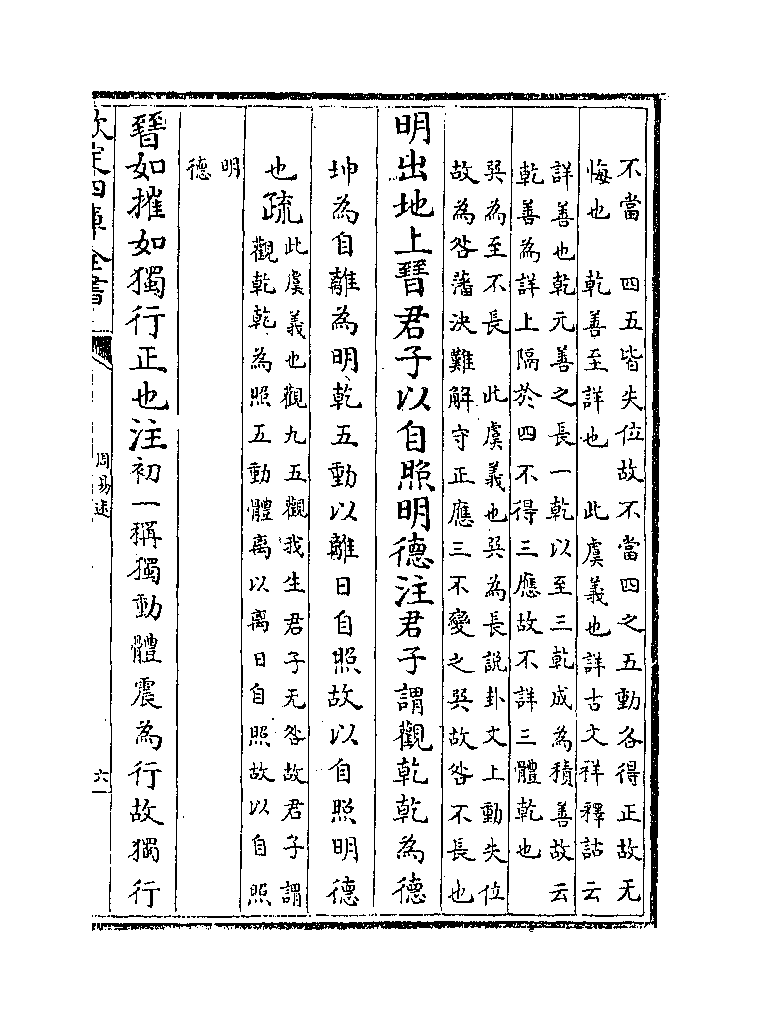 不當　四五皆失位故不當四之五動各得正故无
悔也　乾善至詳也　此虞義也詳古文祥釋詁云
詳善也乾元善之長一乾以至三乾成為積善故云
乾善為詳上隔於四不得三應故不詳三體乾也
巽為至不長　此虞義也巽為長說卦文上動失位
故為咎藩決難解守正應三不變之巽故咎不長也
明出地上晉君子以自照明德注君子謂觀乾乾為德
坤為自離為明乾五動以離日自照故以自照明德
也疏此虞義也觀九五觀我生君子无咎故君子謂
觀乾乾為照五動體离以离日自照故以自照
明
德
晉如摧如獨行正也注初一稱獨動體震為行故獨行
欽定四庫全書
周易述
六一